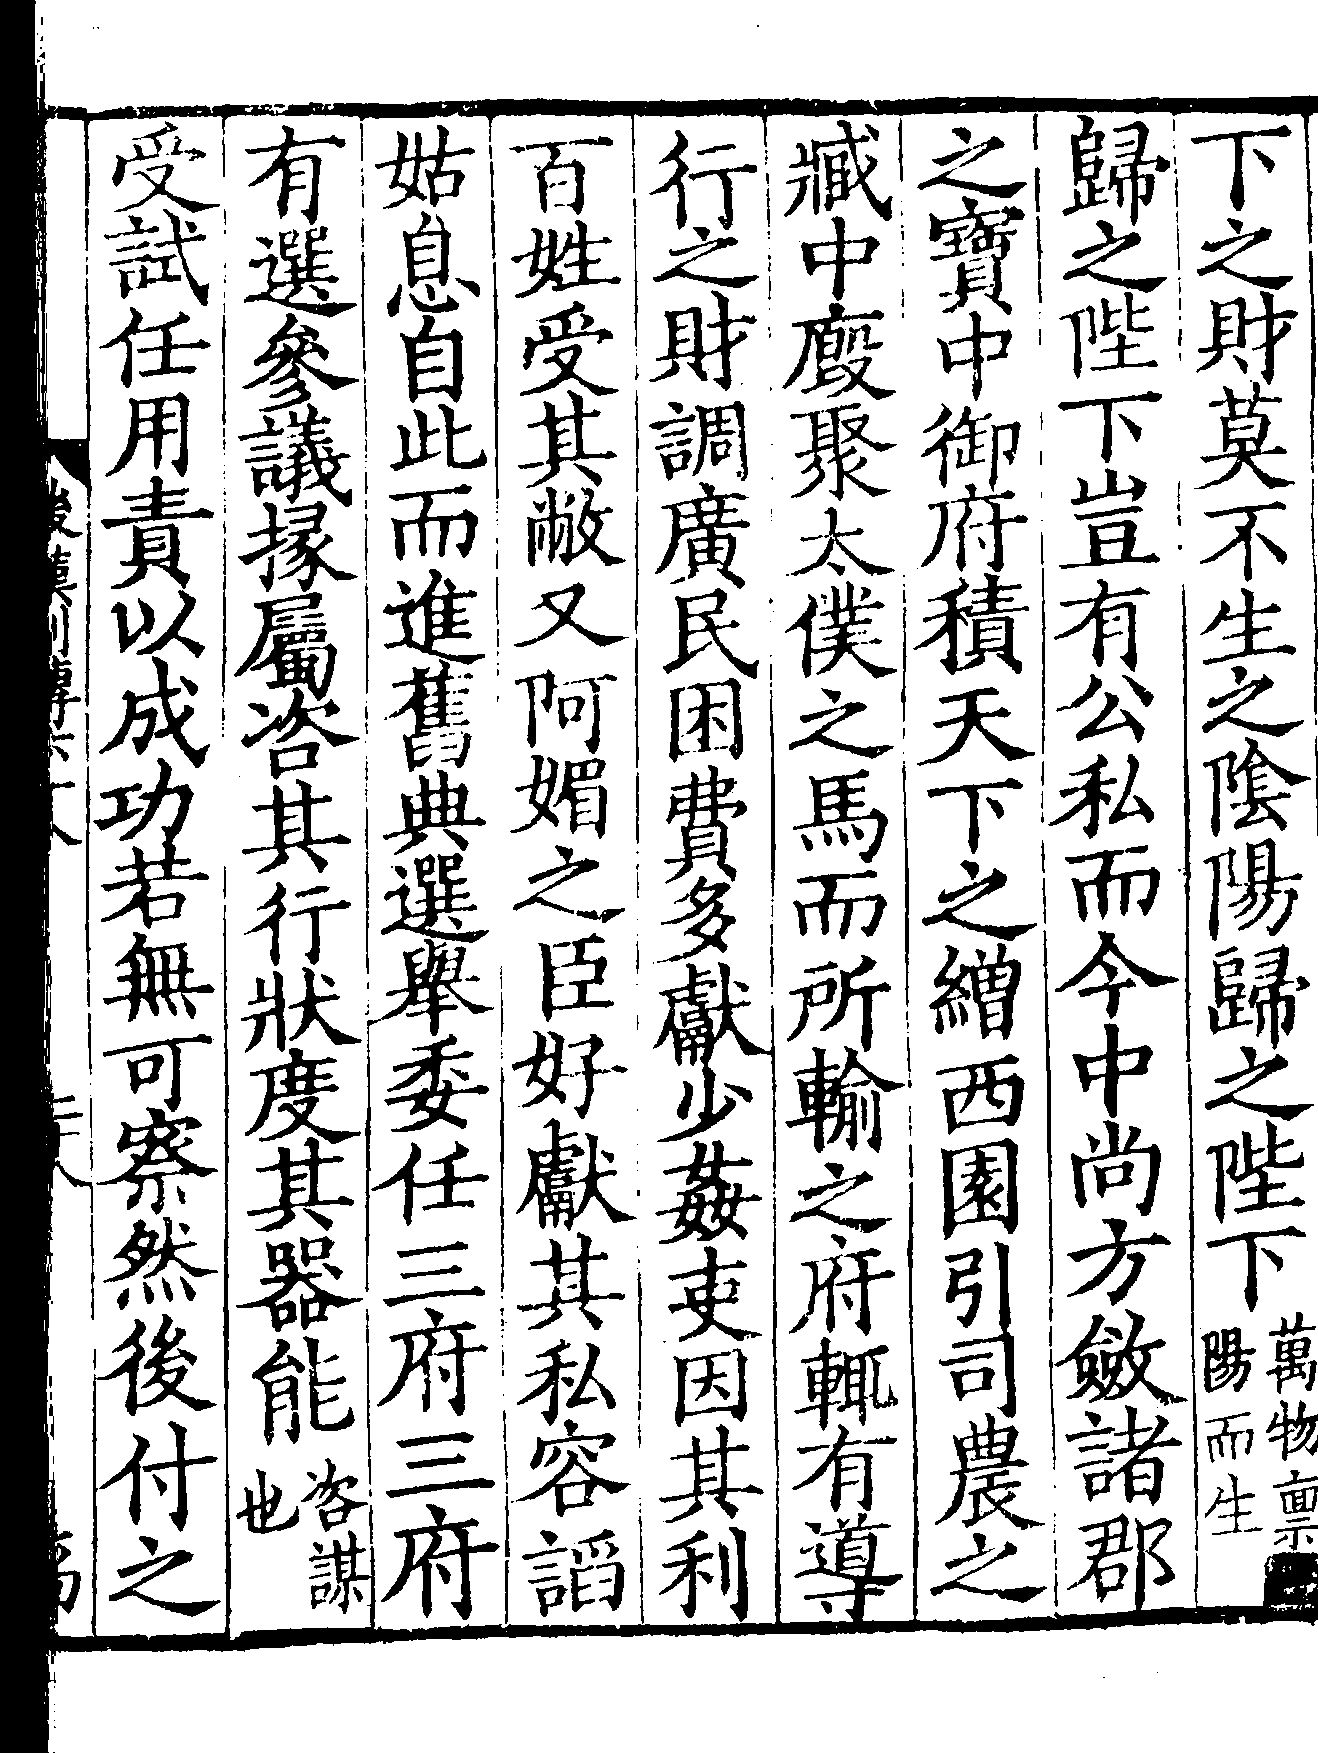 下之財莫不生之陰陽歸之陛下萬物稟
陽而生
歸之陛下豈有公私而今中尚方斂諸郡
之寶中御府積天下之繒西園引司農之
臧中廄聚太僕之馬而所輸之府輒有導
行之財調廣民困費多獻少姦吏因其利
百姓受其敝又阿媚之臣好獻其私容謟
姑息自此而進舊典選舉委任三府三府
有選參議掾屬咨其行狀度其器能咨謀
也
受試任用責以成功若無可察然後付之